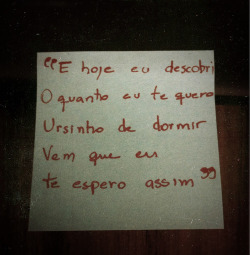 “E hoje eu descobri
O quanto eu te quero
Ursinho de dormir
Vem que eu
te espero assim”